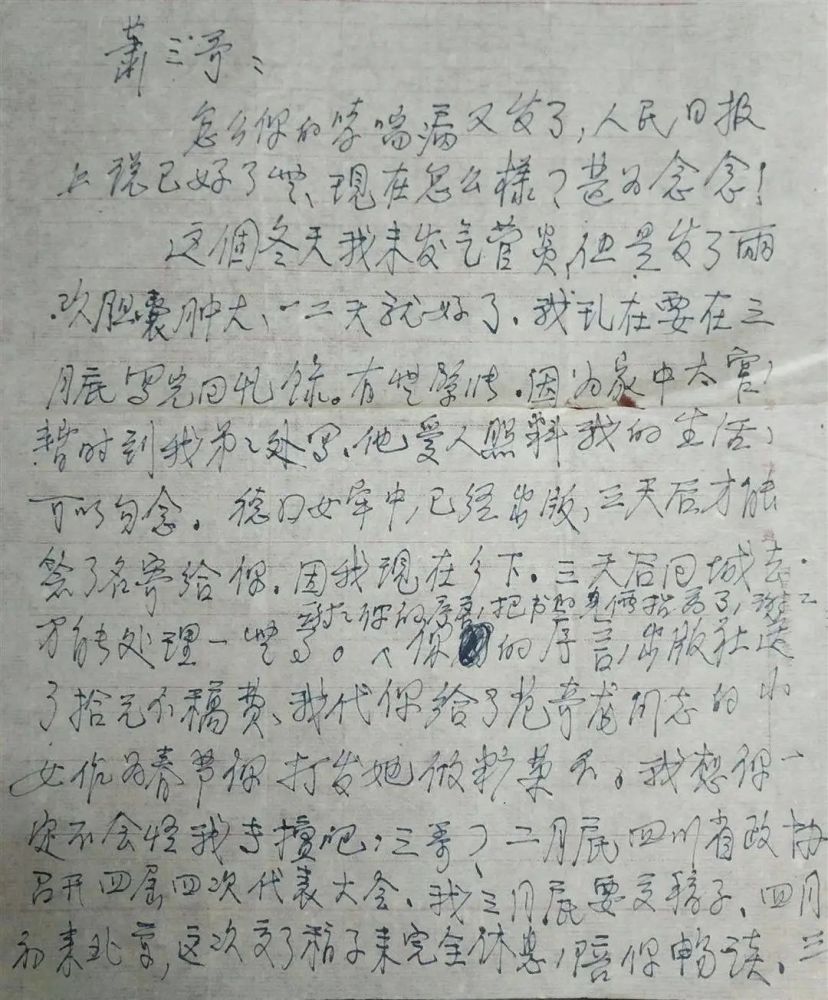 萧三哥：
怎么你的哮喘病又发了，人民日报
上说已好了些，现在怎么樣？甚为念念！
这個冬天我未发气管炎，但是发了两
次胆囊肿大，一二天就好了。我现在要在三
月底写完回忆录。有些紧张。因为家中太窄，
暂时到我弟弟处写，他爱人照料我的生活，
可以勿念。德的女牢中，已经出版，三天后才能
签了名寄给你。因我现在乡下。三天后回城去，
谢谢你的序言，把书的身价抬高了，谢谢
才能处理一些事。你的序言，出版社送
了拾元不稿费，我代你给了范奇龙同志的小
女作为春节你打发她做粑菜不。我想你一
定不会怪我专擅吧，三哥？二月底四川省政协
召开四届四次代表大会。我三月底要交稿子，四月
初来北京，这次交了稿子来完全休息，陪你畅谈。三